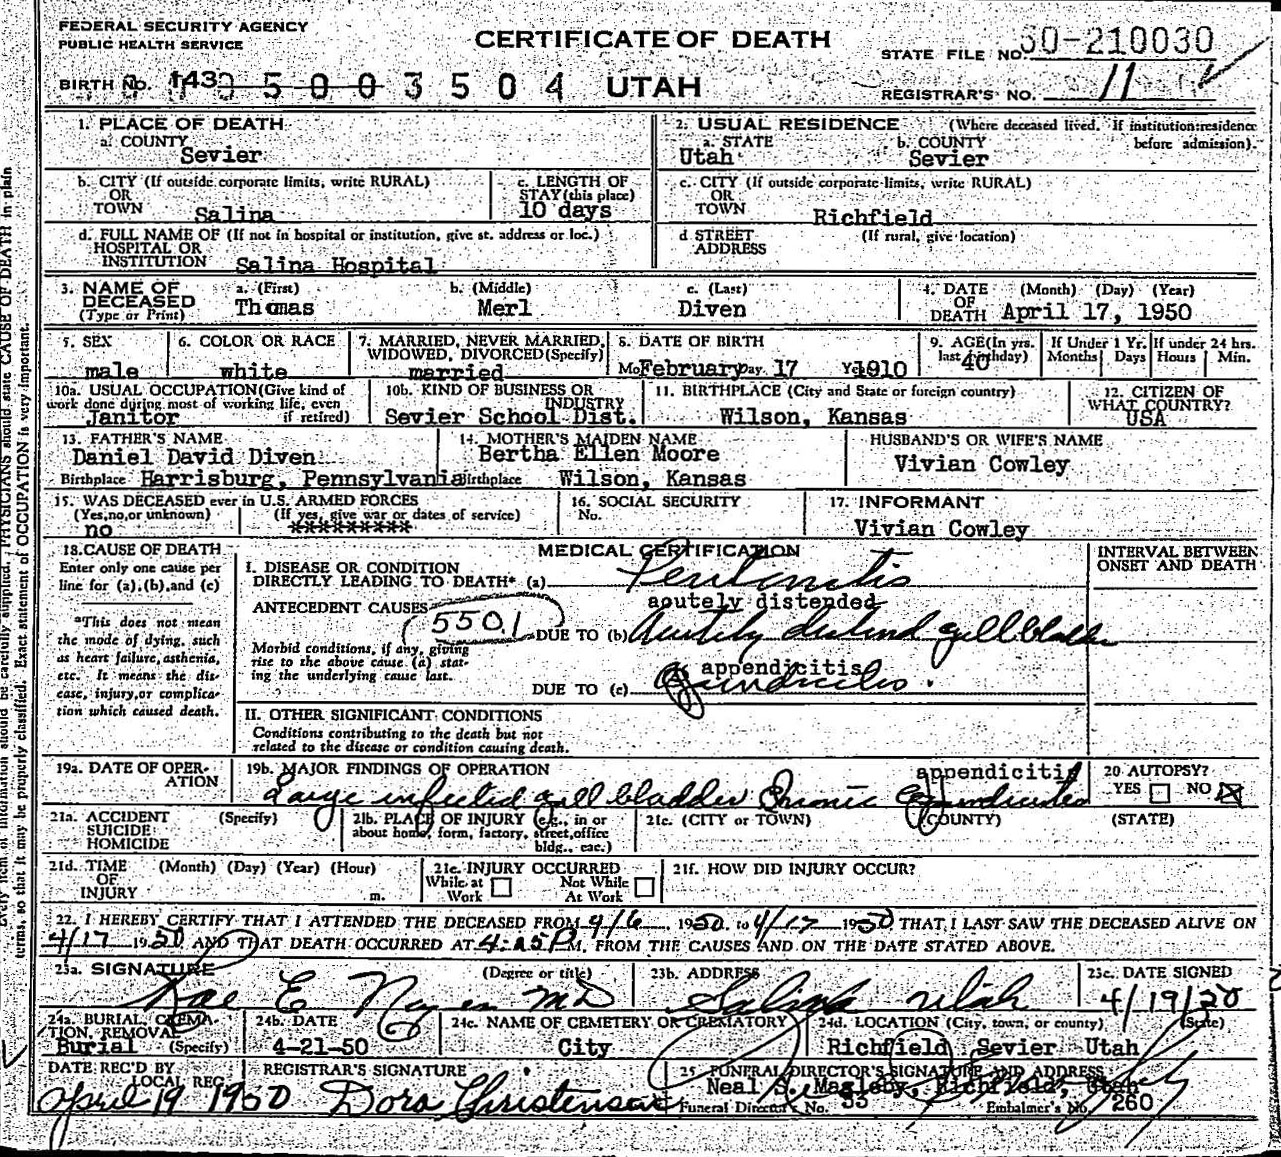 FEDERAL SECURITY AGENCY
PUBLIC HEALTH SERVICE
CERTIFICATE OF DEATH
STATE FILE NO. 50-210030
BIRTH No. 143 5003504 UTAH
REGISTRAR'S NO. 11
1. PLACE OF DEATH
a. COUNTY
Sevier
2. USUAL RESIDENCE (Where deceased lived. If institution: residence before admission).
a. STATE
Utah
b. COUNTY
Sevier
b. CITY (If outside corporate limits, write RURAL)
OR
TOWN Salina
c. LENGTH OF
STAY (this place)
10 days
c. CITY (If outside corporate limits, write RURAL)
OR
TOWN Richfield
d. FULL NAME OF (If not in hospital or institution, give st. address or loc.)
HOSPITAL OR
INSTITUTION Salina Hospital
d STREET (If rural, give location)
ADDRESS
3. NAME OF
DECEASED
(Type or Print)
a. (First)
Thomas
b. (Middle)
Merl
c. (Last)
Diven
4. DATE (Month) (Day) (Year)
OF
DEATH April 17, 1950
5. SEX
male
6. COLOR OR RACE
white
7. MARRIED, NEVER MARRIED,
WIDOWED, DIVORCED (Specify)
married
8. DATE OF BIRTH
Mo. February Day. 17 Yr. 1910
9. AGE (In yrs.
last birthday)
40
If Under 1 Yr.
Months Days
If under 24 hrs.
Hours Min.
10a. USUAL OCCUPATION (Give kind of
work done during most of working life, even
if retired)
Janitor
10b. KIND OF BUSINESS OR
INDUSTRY
Sevier School Dist.
11. BIRTHPLACE (City and State or foreign country)
Wilson, Kansas
12. CITIZEN OF
WHAT COUNTRY?
USA
13. FATHER'S NAME
Daniel David Diven
Birthplace Harrisburg, Pennsylvania
14. MOTHER'S MAIDEN NAME
Bertha Ellen Moore
Birthplace Wilson, Kansas
HUSBAND'S OR WIFE'S NAME
Vivian Cowley
15. WAS DECEASED ever in U.S. ARMED FORCES
(Yes, no, or unknown) (If yes, give war or dates of service)
no *********
16. SOCIAL SECURITY
No.
17. INFORMANT
Vivian Cowley
18. CAUSE OF DEATH
Enter only one cause per
line for (a), (b), and (c)
*This does not mean
the mode of dying, such
as heart failure, asthenia,
etc. It means the dis-
ease, injury, or complica-
tion which caused death.
MEDICAL CERTIFICATION
INTERVAL BETWEEN
ONSET AND DEATH
I. DISEASE OR CONDITION
DIRECTLY LEADING TO DEATH* (a) Peritonitis
ANTECEDENT CAUSES
5501
acutely distended
DUE TO (b) Acutely distend gall bladder
Morbid conditions, if any, giving
rise to the above cause (a) stat-
ing the underlying cause last.
appendicitis
DUE TO (c) Appendicitis.
II. OTHER SIGNIFICANT CONDITIONS
Conditions contributing to the death but not
related to the disease or condition causing death.
19a. DATE OF OPER-
ATION
19b. MAJOR FINDINGS OF OPERATION
appendicitis
Large infected gall bladder Chronic Appendicitis
20 AUTOPSY?
YES NO X
21a. ACCIDENT (Specify)
SUICIDE
HOMICIDE
21b. PLACE OF INJURY (e.g., in or
about home, form, factory, street, office
bldg., etc.)
21c. (CITY or TOWN) (COUNTY) (STATE)
21d. TIME (Month) (Day) (Year) (Hour)
OF
INJURY m.
21e. INJURY OCCURRED
While at Work Not While At Work
21f. HOW DID INJURY OCCUR?
22. I HEREBY CERTIFY THAT I ATTENDED THE DECEASED FROM 4/6 1950 to 4/17 1950 THAT I LAST SAW THE DECEASED ALIVE ON
4/17 1950 AND THAT DEATH OCCURRED AT 4:25 P M. FROM THE CAUSES AND ON THE DATE STATED ABOVE.
23a. SIGNATURE (Degree or title)
Rae E Noyes MD
23b. ADDRESS
Salina Utah
23c. DATE SIGNED
4/19/50
24a. BURIAL, CREMA-
TION, REMOVAL
(Specify)
Burial
24b. DATE
4-21-50
24c. NAME OF CEMETERY OR CREMATORY
City
24d. LOCATION (City, town, or county) (State)
Richfield Sevier Utah
DATE REC'D BY
LOCAL REG.
April 19 1950
REGISTRAR'S SIGNATURE
Dora Christensen
25 FUNERAL DIRECTOR'S SIGNATURE AND ADDRESS
Neal S. Magleby, Richfield, Utah
Funeral Director's No. 53 Embalmer's No. 260
Every item of information should be carefully supplied. PHYSICIANS should state CAUSE OF DEATH in plain
terms, so that it may be properly classified. Exact statement of OCCUPATION is very important.